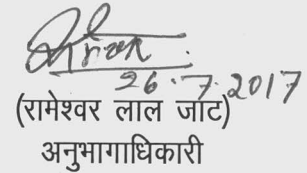 26.7.2017
(रामेश्वर लाल जाट)
अनुभागाधिकारी